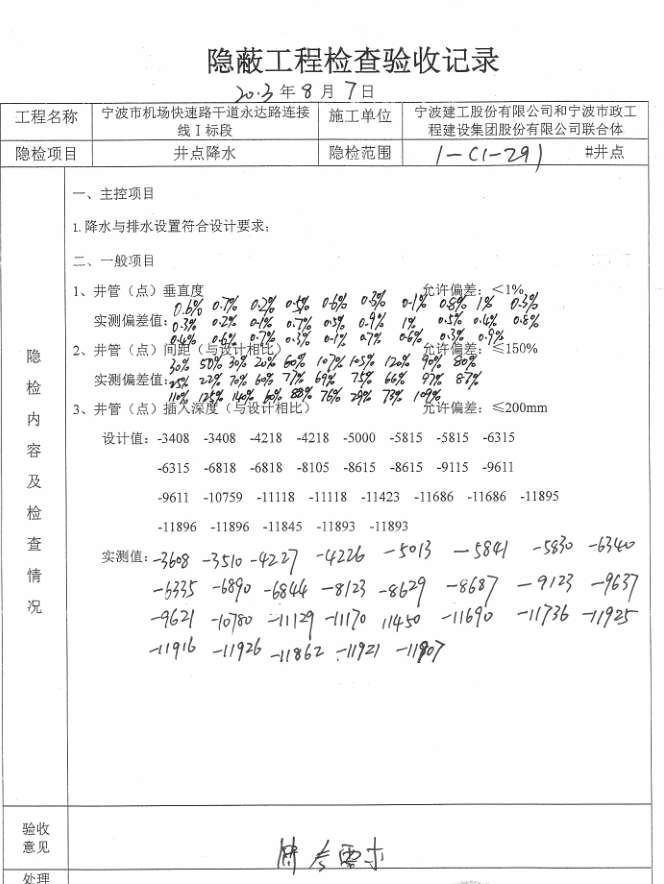 隐蔽工程检查验收记录
2013年8月7日
工程名称 宁波市机场快速路干道永达路连接线Ⅰ标段 施工单位 宁波建工股份有限公司和宁波市政工程建设集团股份有限公司联合体
隐检项目 井点降水 隐检范围 1-(1-29) #井点
隐检内容及检查情况
一、主控项目
1.降水与排水设置符合设计要求;
二、一般项目
1、井管（点）垂直度 允许偏差：≤1%
0.6% 0.7% 0.2% 0.5% 0.6% 0.3% 0.1% 0.8% 1% 0.3%
实测偏差值: 0.3% 0.2% 0.1% 0.7% 0.5% 0.9% 1% 0.5% 0.4% 0.8%
0.4% 0.6% 0.7% 0.3% 0.1% 0.7% 0.6% 0.3% 0.9%
2、井管（点）间距（与设计相比） 允许偏差：≤150%
30% 50% 30% 20% 60% 107% 105% 120% 90% 80%
实测偏差值: 25% 22% 70% 60% 77% 69% 75% 66% 97% 87%
110% 125% 140% 60% 88% 76% 29% 73% 109%
3、井管（点）插入深度（与设计相比） 允许偏差：≤200mm
设计值：-3408 -3408 -4218 -4218 -5000 -5815 -5815 -6315
-6315 -6818 -6818 -8105 -8615 -8615 -9115 -9611
-9611 -10759 -11118 -11118 -11423 -11686 -11686 -11895
-11896 -11896 -11845 -11893 -11893
实测值：-3608 -3510 -4227 -4226 -5013 -5841 -5830 -6340
-6335 -6890 -6844 -8123 -8629 -8687 -9123 -9637
-9621 -10780 -11129 -11170 11450 -11690 -11736 -11925
-11916 -11926 -11862 -11921 -11907
验收意见
处理